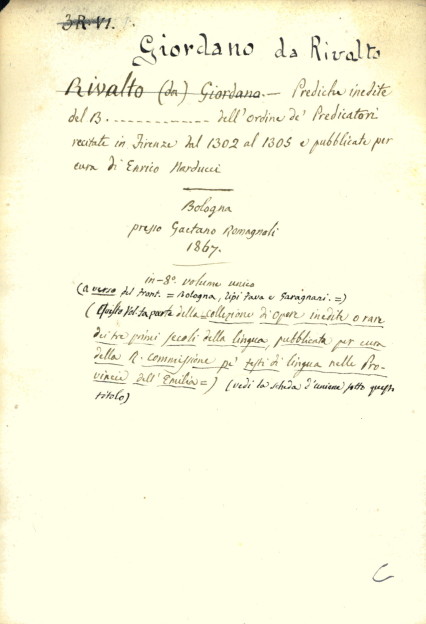 3.R.VI.
Giordano da Rivalto
Rivalto (da) Giordano. — Prediche inedite
del B. ------------- dell'ordine de' Predicatori
recitate in Firenze dal 1302 al 1305 e pubblicate per
cura di Enrico Narducci
Bologna
presso Gaetano Romagnoli
1867.
in-8º. volume unico
(a verso del front. = Bologna, tipi Fava e Garagnani. =)
(Questo vol. fa parte della = collezione di opere inedite o rare
dei tre primi secoli della lingua, pubblicata per cura
della R. commissione pe' testi di lingua nelle Pro-
vincie dell'Emilia =) (vedi la scheda d'unione sotto questo
titolo)
C